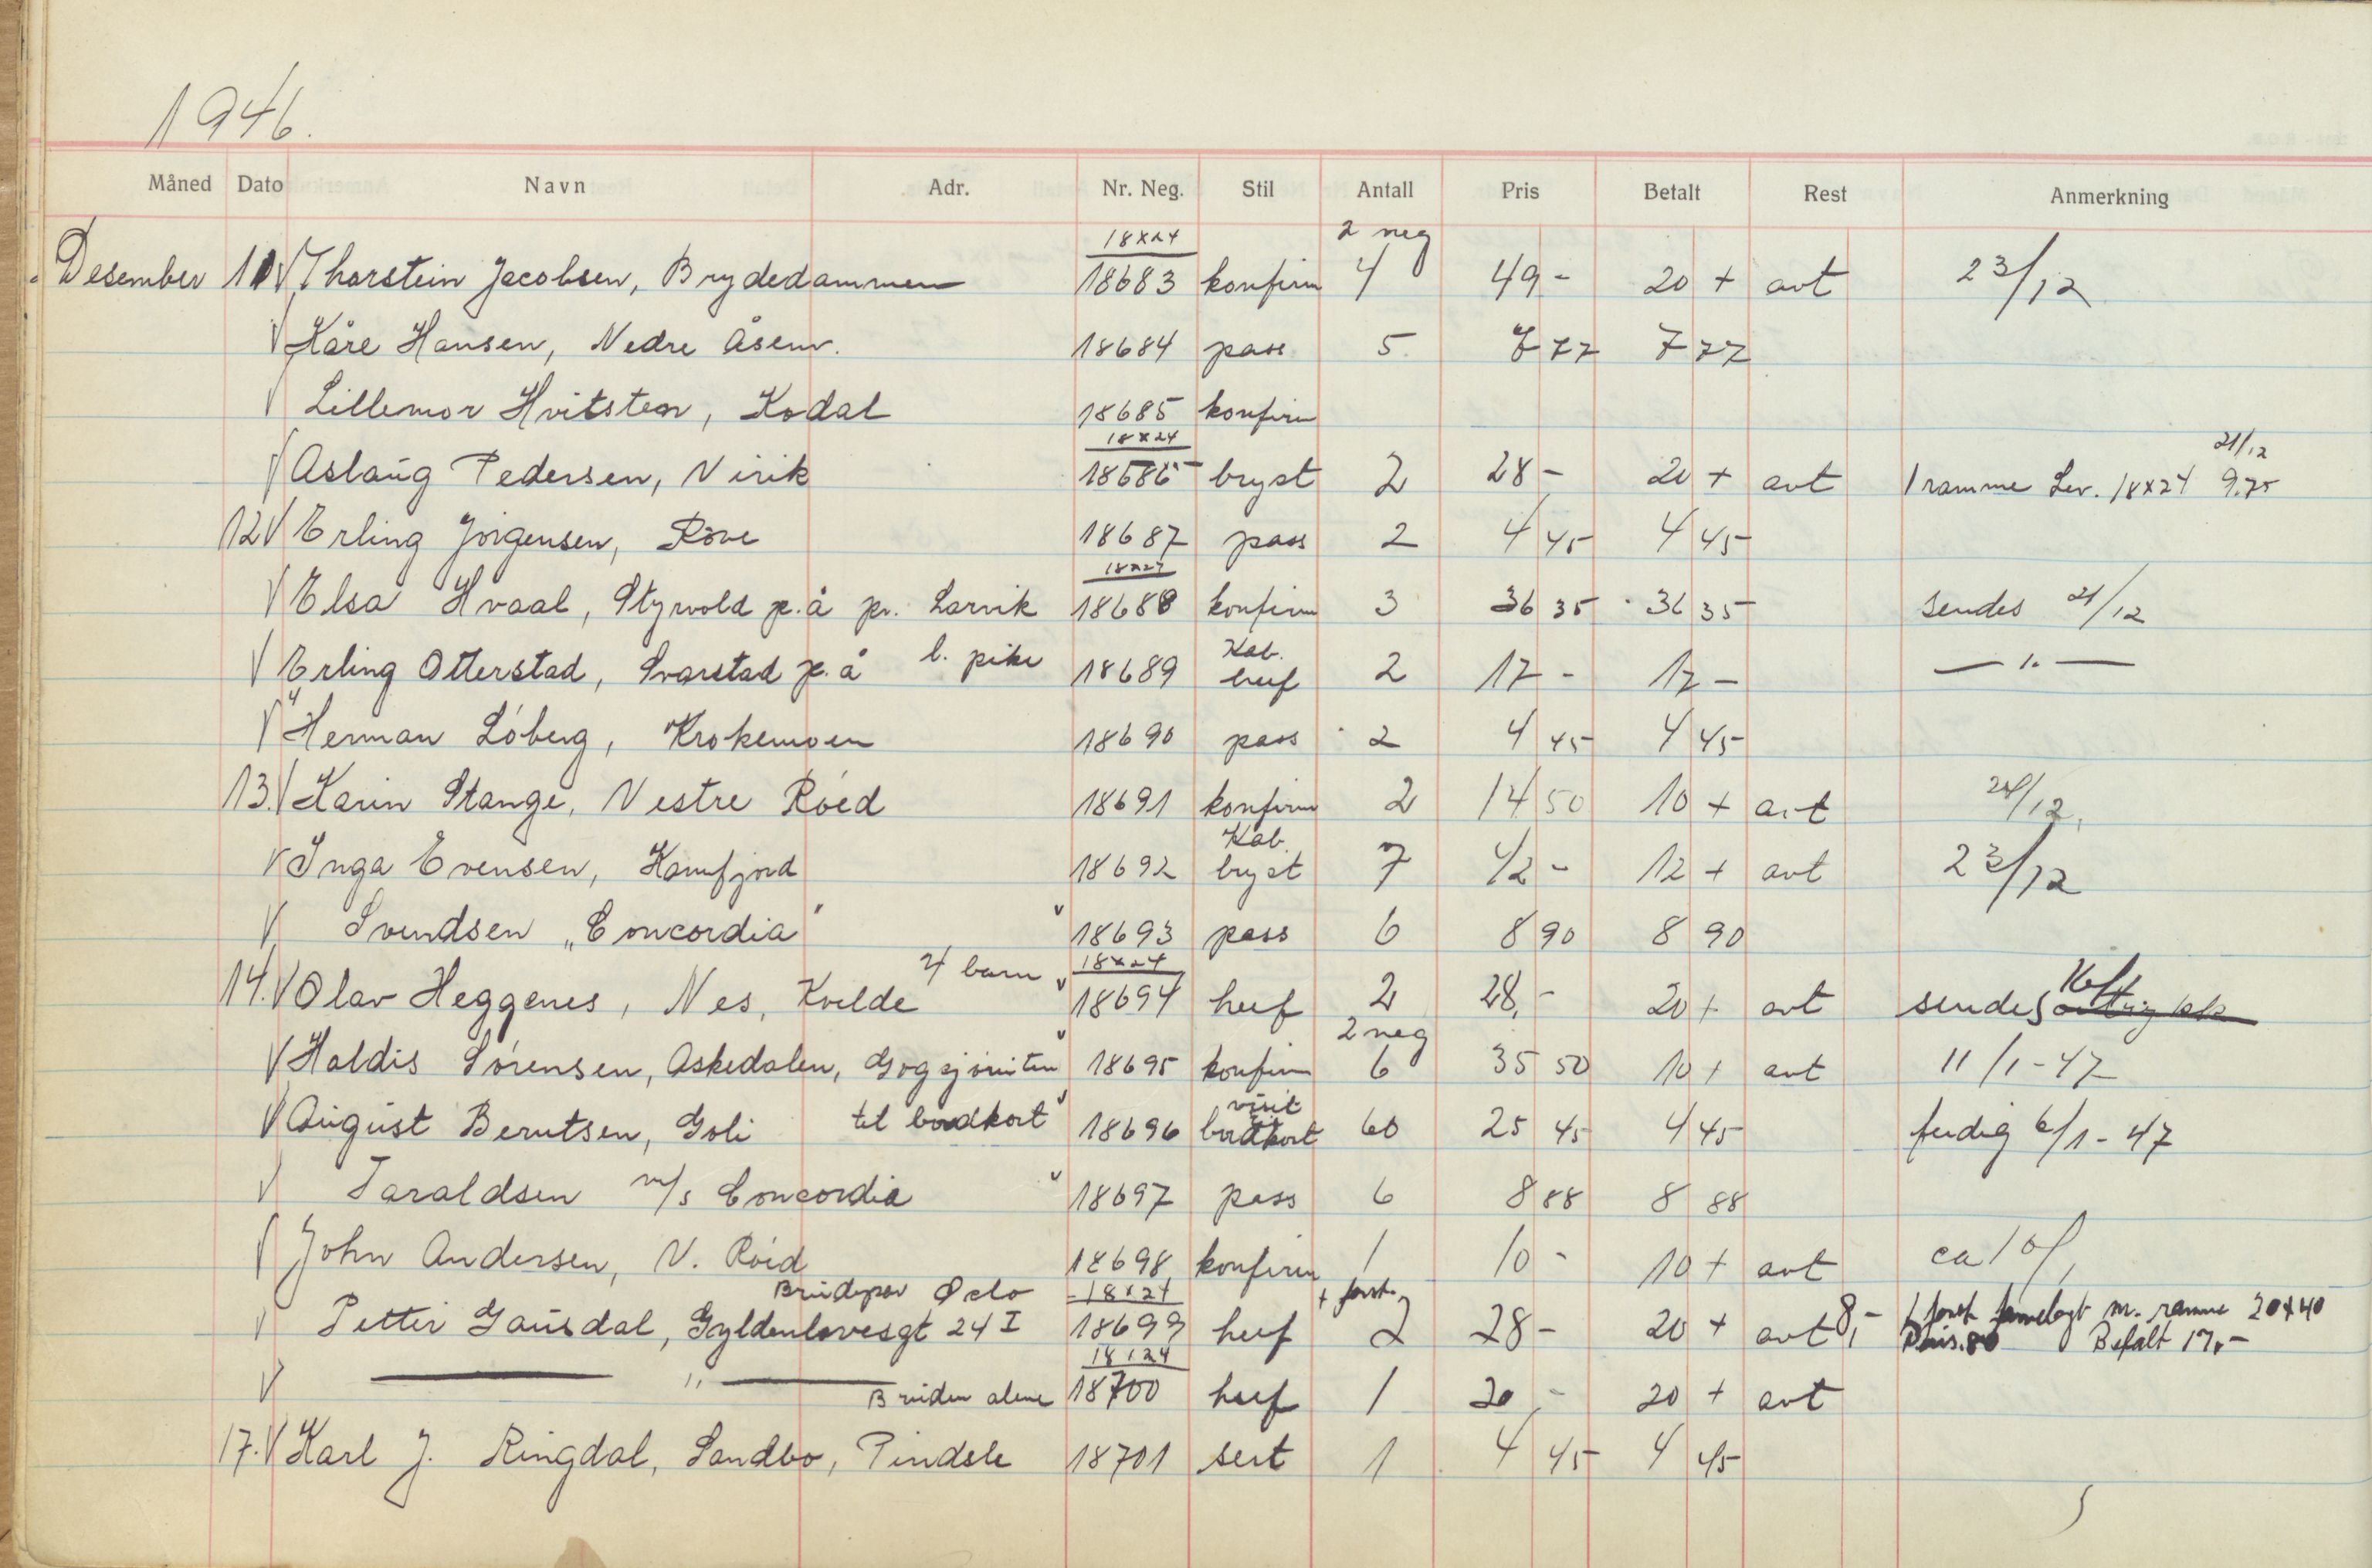 1946.
Måned Dato Navn Adr. Nr. Neg. Stil Antall Pris Betalt Rest Anmerkning
18x24 2 neg
Desember 11 V Thorstein Jacobsen, Brydedammen 18683 konfirm 4 49 - 20 + avt 23/12
V Kåre Hansen, Nedre Åsenv. 18684 pass 5 7 77 7 77
V Lillemor Hvitsten, Kodal 18685 konfirm
18x24 21/12
V Aslaug Pedersen, Virik 18686 bryst 2 28 - 20 + avt 1 ramme Lev. 18x24 9.75
12 V Erling Jörgensen, Röve 18687 pass 2 4 45 4 45
18x24
V Elsa Hvaal, Styrvold p.å pr. Larvik 18688 konfirm 3 36 35 36 35 sendes 21/12
l. pike Kab.
V Erling Otterstad, Svarstad p.å 18689 heif 2 17 - 17 - — " —
V Herman Löberg, Krokemoen 18690 pass 2 4 45 4 45
13. V Karin Stange, Vestre Röed 18691 konfirm 2 14 50 10 + avt 24/12
Kab.
V Inga Evensen, Kamfjord 18692 bryst 7 42 - 12 + avt 23/12
V Svendsen "Concordia" 18693 pass 6 8 90 8 90
4 barn 18x24
14. V Olav Heggenes, Nes, Kvelde 18694 heif 2 28,- 20 + avt sendes
2 neg
V Haldis Sörensen, Askedalen, Gogsjöruten 18695 konfirm 6 35 50 10 + avt 11/1-47
visit
V August Berntsen, Goli til bordkort 18696 bordkort 60 25 45 4 45 ferdig 6/1-47
V Taraldsen m/s Concordia 18697 pass 6 8 88 8 88
V John Andersen, V. Röed 18698 konfirm 1 10 - 10 + avt ca 10/1
Brudepar Oslo 18x24 + forst.
V Petter Gausdal, Gyldenlovesgt 24 I 18699 heif 2 28 - 20 + avt 8,- 1 forst. m. ramme 20x40
18x24 Pris. 80 Betalt 17.-
V — " — Bruden alene 18700 heif 1 20 - 20 + avt
17. V Karl J. Ringdal, Sandbo, Pindsle 18701 sert 1 4 45 4 45